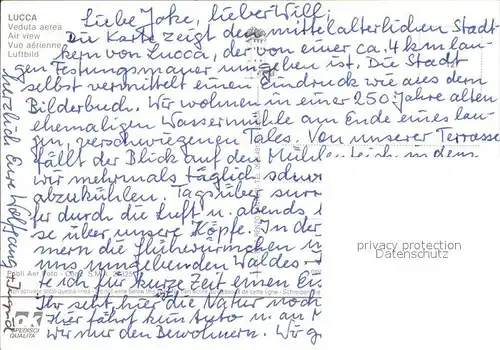 LUCCA
Veduta aerea
Air view
Vue aérienne
Luftbild
Liebe Joke, lieber Will!
Die Karte zeigt den mittelalterlichen Stadt-
kern von Lucca, der von einer ca. 4 km lan-
gen Festungsmauer umgeben ist. Die Stadt
selbst vermittelt einen Eindruck wie aus dem
Bilderbuch. Wir wohnen in einer 250 Jahre alten
ehemaligen Wassermühle am Ende eines lan-
gen, verschwiegenen Tales. Von unserer Terrasse
fällt der Blick auf den Mühlenteich in dem
wir mehrmals täglich
abzukühlen. Tagsüber surr
fer durch die Luft u. abends
se über unsere Köpfe. In der
mern die Glühwürmchen
uns umgebenden Waldes
te ich für kurze Zeit einen
Ihr seht, hier die Natur noch
Hier fährt kein Auto u. am
wir nur den Bewohnern. Wir
Herzlich Eure Wolfgang +
privacy protection
Datenschutz
ok
SPEDISCI
QUALITÀ